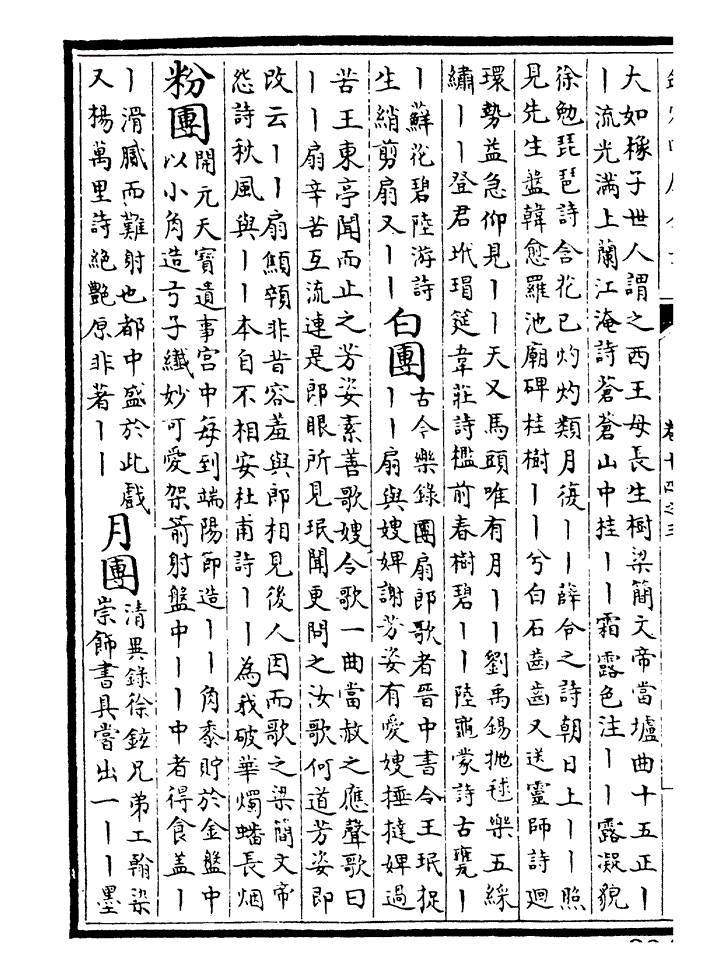 大如橡子世人謂之西王母長生樹梁簡文帝當壚曲十五正丨
丨流光滿上蘭江淹詩蒼蒼山中桂丨丨霜露色注丨丨露凝貌
徐勉琵琶詩含花已灼灼類月復丨丨薛令之詩朝日上丨丨照
見先生盤韓愈羅池廟碑桂樹丨丨兮白石齒齒又送靈師詩廻
環勢益急仰見丨丨天又馬頭唯有月丨丨劉禹錫抛毬樂五綵
繡丨丨登君玳瑁筵韋莊詩檻前春樹碧丨丨陸龜蒙詩古甕丨
丨蘚花碧陸游詩
生綃剪扇又丨丨
白團
古今樂錄團扇郎歌者晉中書令王珉捉
丨丨扇與嫂婢謝芳姿有愛嫂捶撻婢過
苦王東亭聞而止之芳姿素善歌嫂令歌一曲當赦之應聲歌曰
丨丨扇辛苦互流連是郎眼所見珉聞更問之汝歌何道芳姿即
改云丨丨扇顦顇非昔容羞與郎相見後人因而歌之梁簡文帝
怨詩秋風與丨丨本自不相安杜甫詩丨丨為我破華燭蟠長烟
粉團
開元天寶遺事宫中每到端陽節造丨丨角黍貯於金盤中
以小角造弓子纖妙可愛架箭射盤中丨丨中者得食盖丨
丨滑膩而難射也都中盛於此戲
又楊萬里詩絶艷原非著丨丨
月團
清異錄徐鉉兄弟工翰染
崇飾書具嘗出一丨丨墨